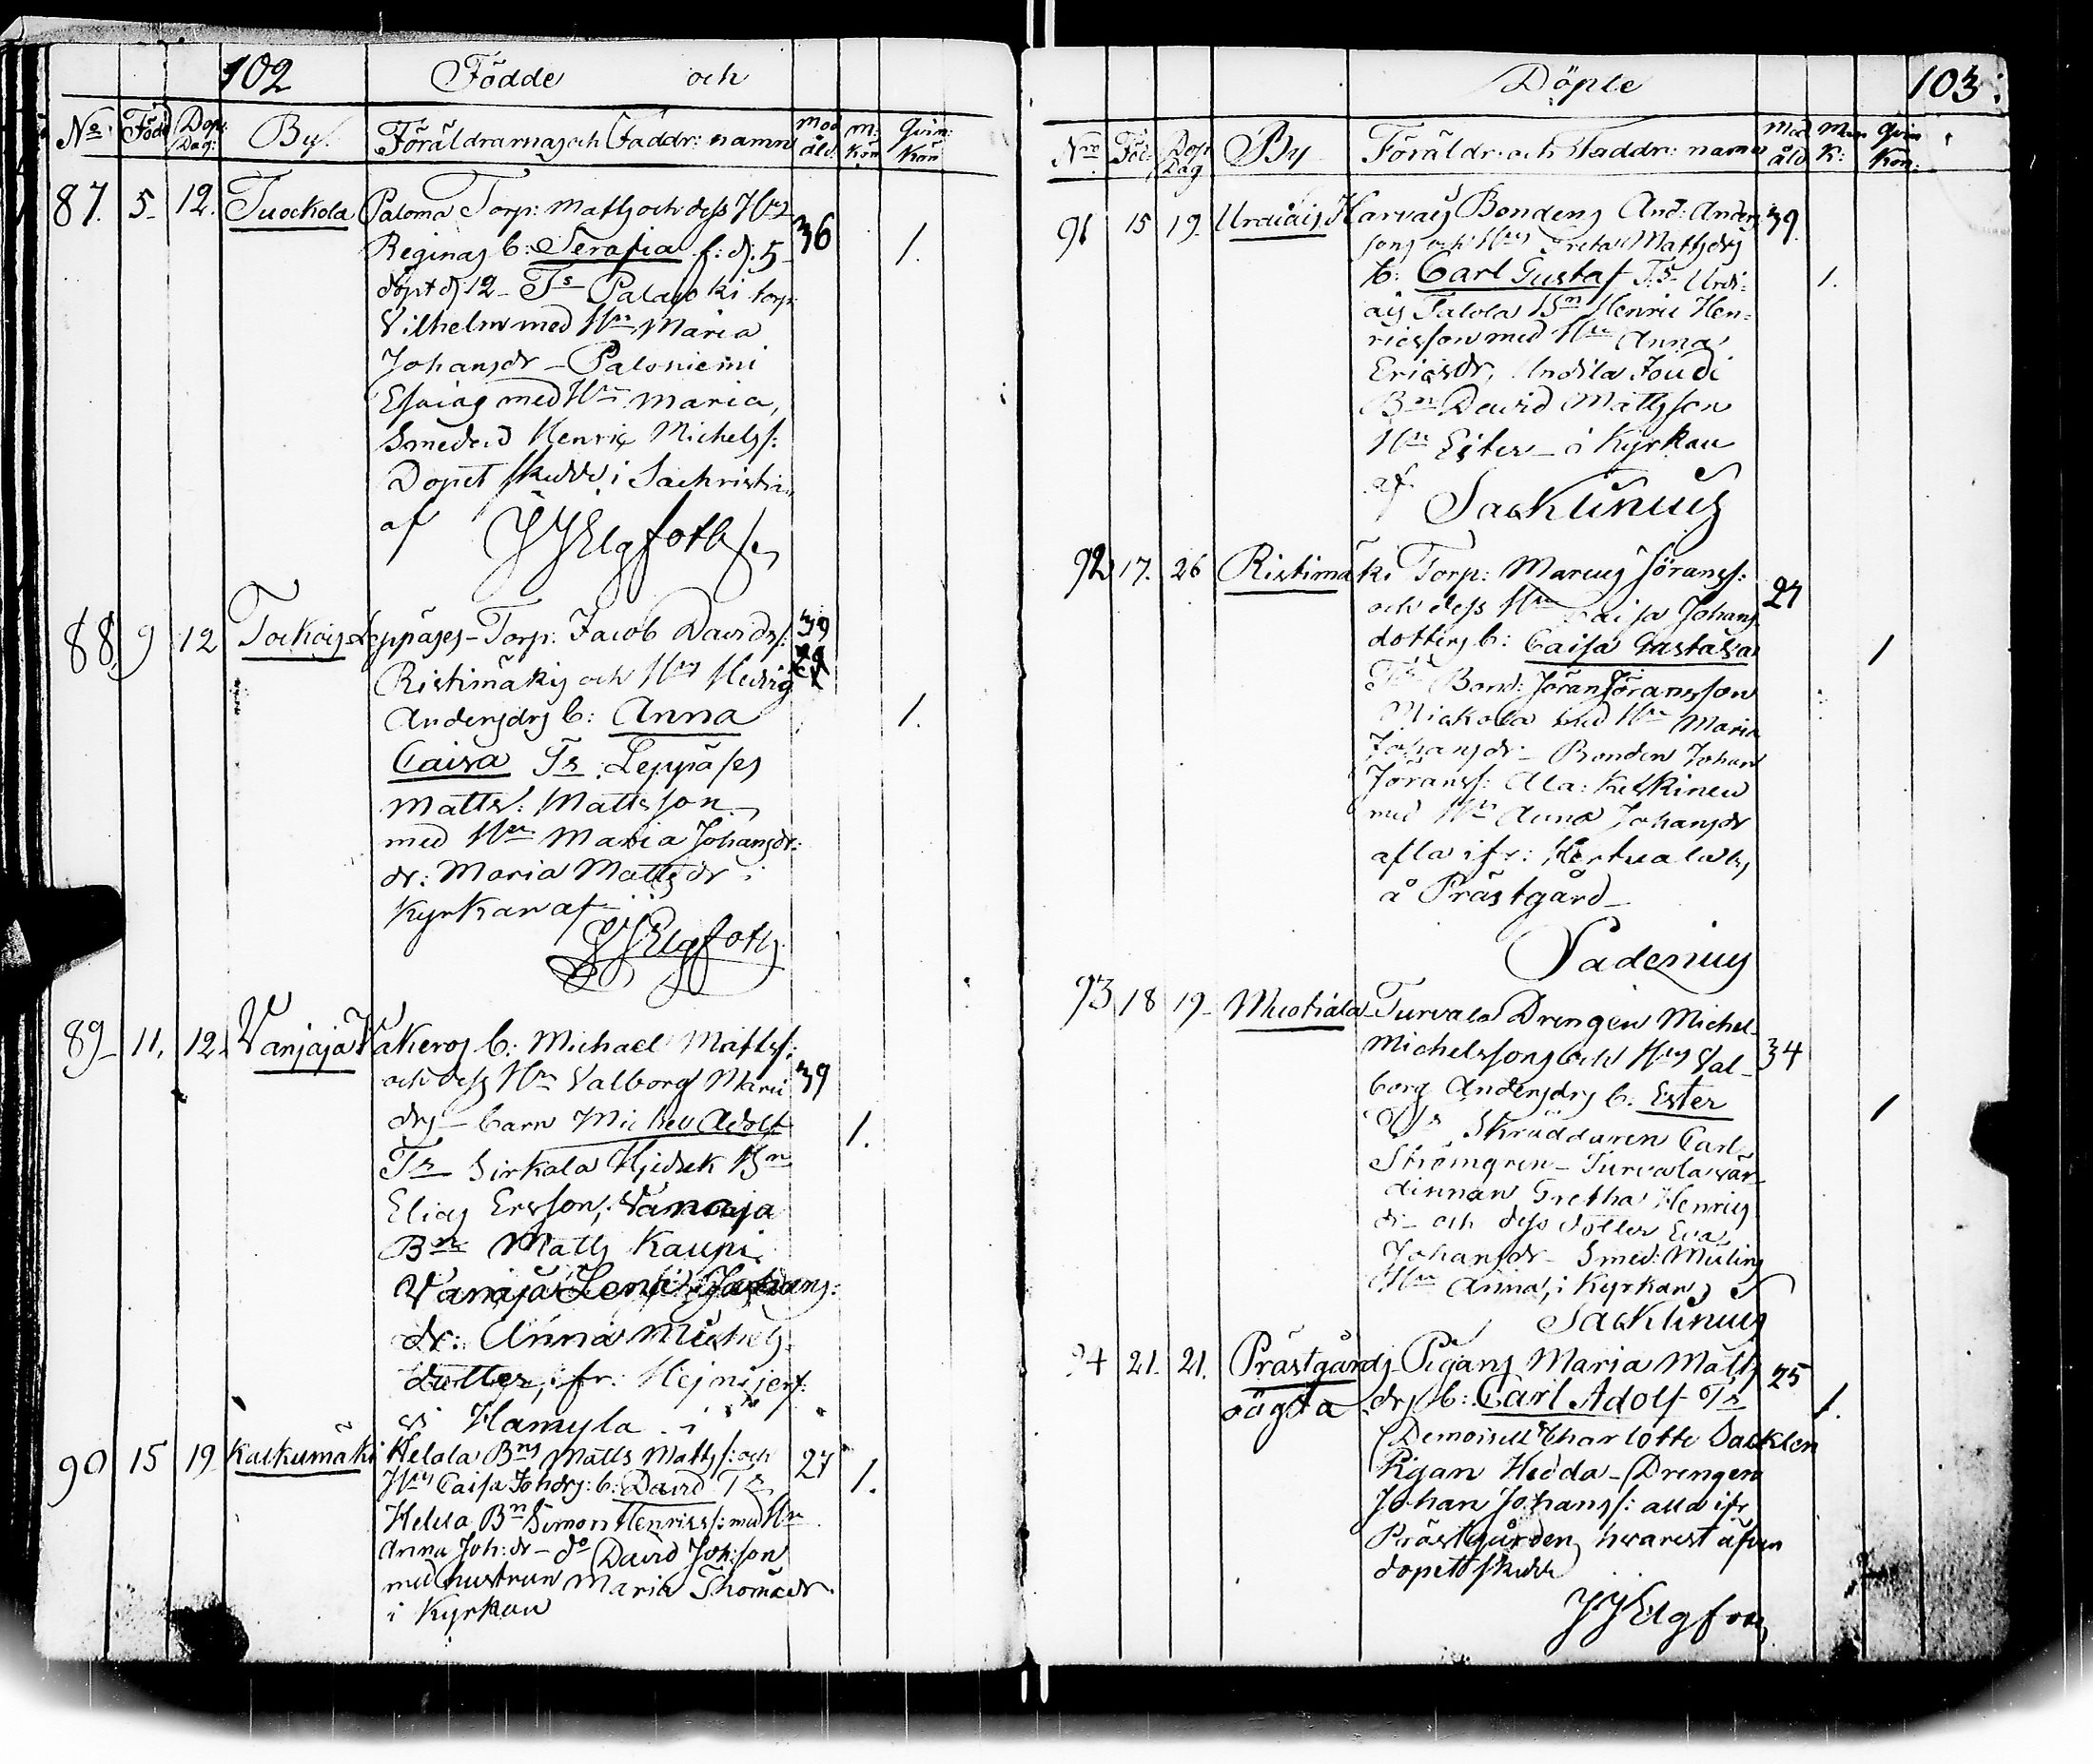 102 Födde och
No Född Dop: Dag: By. Föräldrarnas och Faddr: namn Mod åld. M: Kön Qvin: Kön
87. 5 12. Tuockola Paloma Torp: Matts och dess Hus 36 1.
Reginas b: Serafia f: d: 5
döpt d 12 Ts Palajoki torp
Vilhelm med Hu Maria
Johansdr – Paloniemi
Esaias med Hu Maria,
Smeden Henric Michelss:
Dopet skedde i Sachristian
af JJElgfoth
88. 9 12 Leppäses – Torp: Jacob Davids: 39
Ristimäkis och Hus Hedvig
Andersdrs b: Anna 1.
Caisa Ts Leppäses
Matts: Mattsson
med Hu Maria Johansdr:
dr: Maria Mattsdr i
Kyrkan af
JJElgfoth
89 11. 12. Vanjaja b: Michael Mattss:
och dess Hu Valborg Marie 39
drs – barn Michel Adolf 1.
Ts Sirkola Bn
Elias Ersson, Vanaja
Bn Matts Kaupi
Vanaja
dr: Anna Michels
dotter, ifr:
Hamyla i
90 15 19 Kalkumäki Helola Bns Matts Mattss: och 27 1.
Hus Caisa Johdrs: b: David Ts
Bn Simon Henricss: med Hu
Anna Joh: dr – do David Johsson
med hustrun Maria Thomasdr
i Kyrkan
Döpte 103.
Nro Föd: Dop Dag By Föräldr: och Faddr: namn Mod åld Man K: Qvin Kön:
91 15 19. Urdiais Bondens And: Anders 39
sons och Hus Greta Mattsdrs
b: Carl Gustaf Ts Urdi: 1.
ais Talola Bn Henric Hen:
ricsson med Hu Anna
Ericsdr, Andila Joudi
Bn David Mattsson
Hu Ester – i Kyrkan
af Sacklinius
92 17. 26 Ristimäki Torp: Marcus Görans: 27
och dess Hu Caisa Johans
dotters b: Caisa Gustafva 1
Ts Bond: Jöran Göransson
Miekola med Hu Maria
Johansdr – Bonden Johan
Jöranss: Ala: Keskinen
med Hu Anna Johansdr
alla ifr: Kertuala by
å Prästgård
Vadenius
93 18 19 Muotiala Turvala Drengen Michel
Michelssons och Hus Val 34
borg Andersdrs b: Ester 1
Ts Skräddaren Carl
Strömgren – Turvala vär
dinnan Gretha Henrics
dr – och dess dotter Eva
Johansdr – Smed: Mulins
Hu Anna, i Kyrkan
Sacklinius
94 21. 21. Prästgårds Pigans Maria Matts 25
drs b: Carl Adolf Ts 1.
Demoiselle Charlotte Sacklen
Pigan Hedda – Drengen
Johan Johanss: alla ifr
Prästgården, hvarest äfven
dopet skedde
JJElgfoth